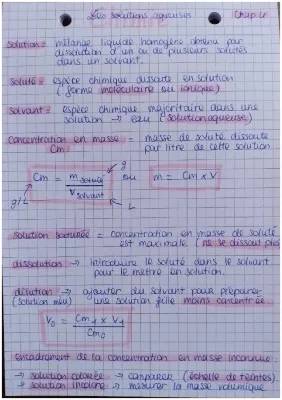 Les solutions aqueuses Chap 4
solution = mélange liquide homogène obtenu par
dissolution d'un ou de plusieurs solutés
dans un solvant.
soluté = espèce chimique dissoute en solution
(forme moléculaire ou ionique)
solvant = espèce chimique majoritaire dans une
solution → eau (solution aqueuse)
concentration en masse = masse de soluté dissoute
Cm par litre de cette solution
g
Cm = m soluté / V solvant ou m = Cm x V
g/L L
solution saturée = concentration en masse de soluté
est maximale (ne se dissout plus)
dissolution → introduire le soluté dans le solvant
pour le mettre en solution.
dilution → ajouter du solvant pour préparer
(solution mère) une solution fille moins concentrée
V0 = Cm1 x V1 / Cm0
encadrement de la concentration en masse inconnue
→ solution colorée → comparer (échelle de teintes)
→ solution incolore → mesurer la masse volumique